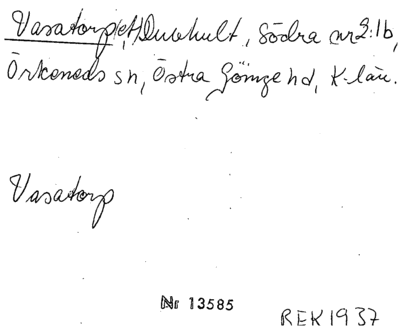 Vasatorp(et) Duvhult, Södra nr 2:16,
Örkeneds sn, Östra Göinge hd, K-län.
Vasatorp
Nr 13585
REK 1937